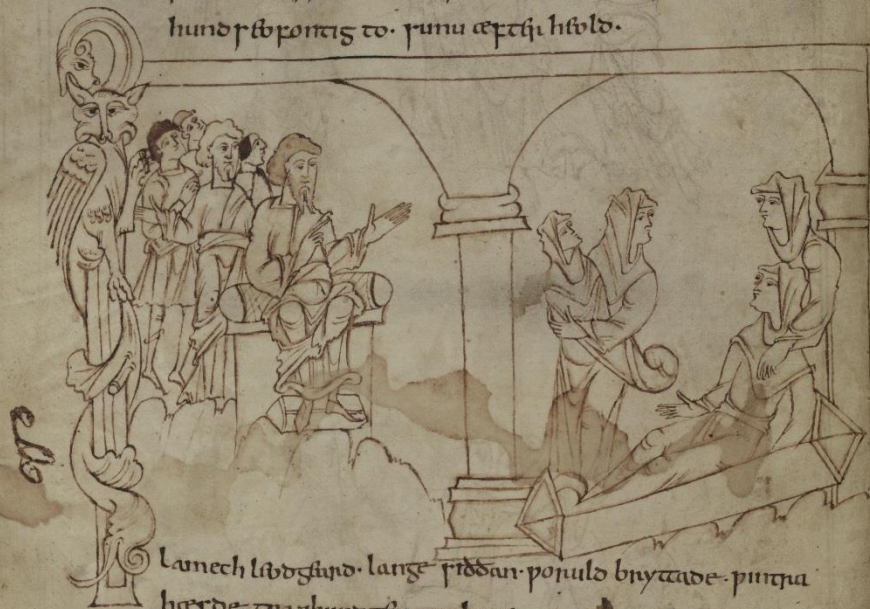 hund seofontig to· sunu æfter heold·
lamech leodgeard· lange siððan· ƿoruld bryttade· ƿintra
hæfde